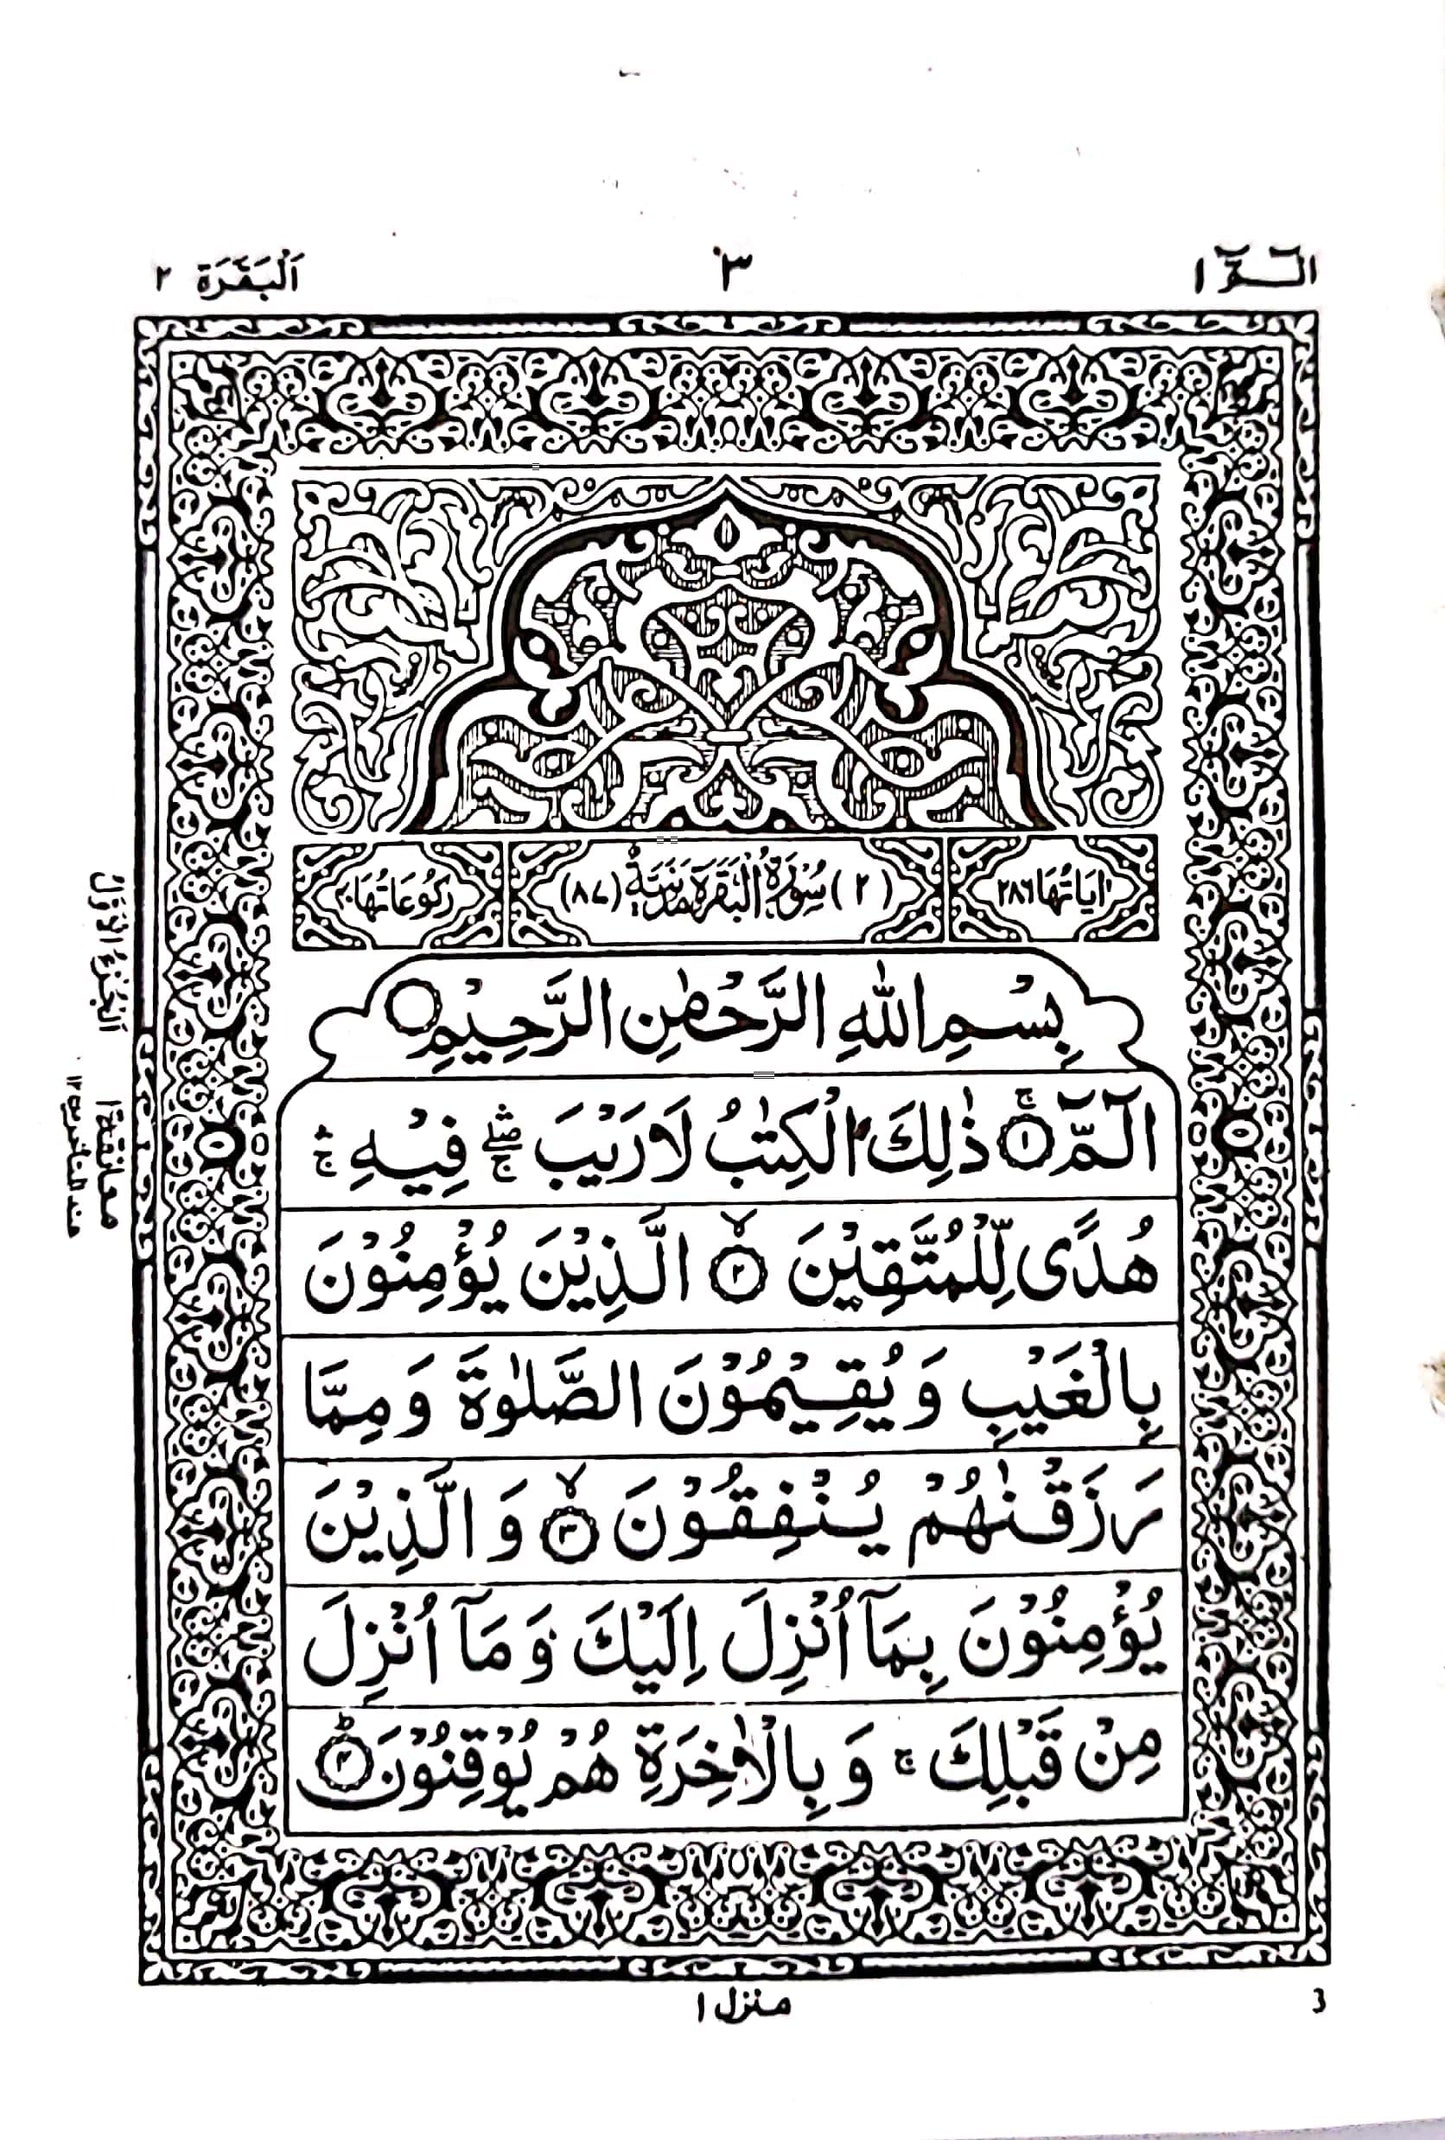 الٓـمّٓ ١
٣
اَلْبَقَرَة ٢
اٰيَاتُهَا ٢٨٦
(٢) سُوْرَةُ الْبَقَرَةِ مَدَنِيَّةٌ (٨٧)
رُكُوْعَاتُهَا ٤٠
بِسْمِ اللّٰهِ الرَّحْمٰنِ الرَّحِيْمِ
الٓمّٓ ۚ﴿١﴾ ذٰلِكَ الْكِتٰبُ لَا رَيْبَ ۛۖۚ فِيْهِ ۛۚ
هُدًى لِّلْمُتَّقِيْنَ ۙ﴿٢﴾ الَّذِيْنَ يُؤْمِنُوْنَ
بِالْغَيْبِ وَ يُقِيْمُوْنَ الصَّلٰوةَ وَ مِمَّا
رَزَقْنٰهُمْ يُنْفِقُوْنَ ۙ﴿٣﴾ وَ الَّذِيْنَ
يُؤْمِنُوْنَ بِمَآ اُنْزِلَ اِلَيْكَ وَ مَآ اُنْزِلَ
مِنْ قَبْلِكَ ۚ وَ بِالْاٰخِرَةِ هُمْ يُوْقِنُوْنَ ؕ﴿٤﴾
اَلْجُزْءُ الْاَوَّلُ
معانقة ١
عند المتأخرين ١٢
منزل ١
3